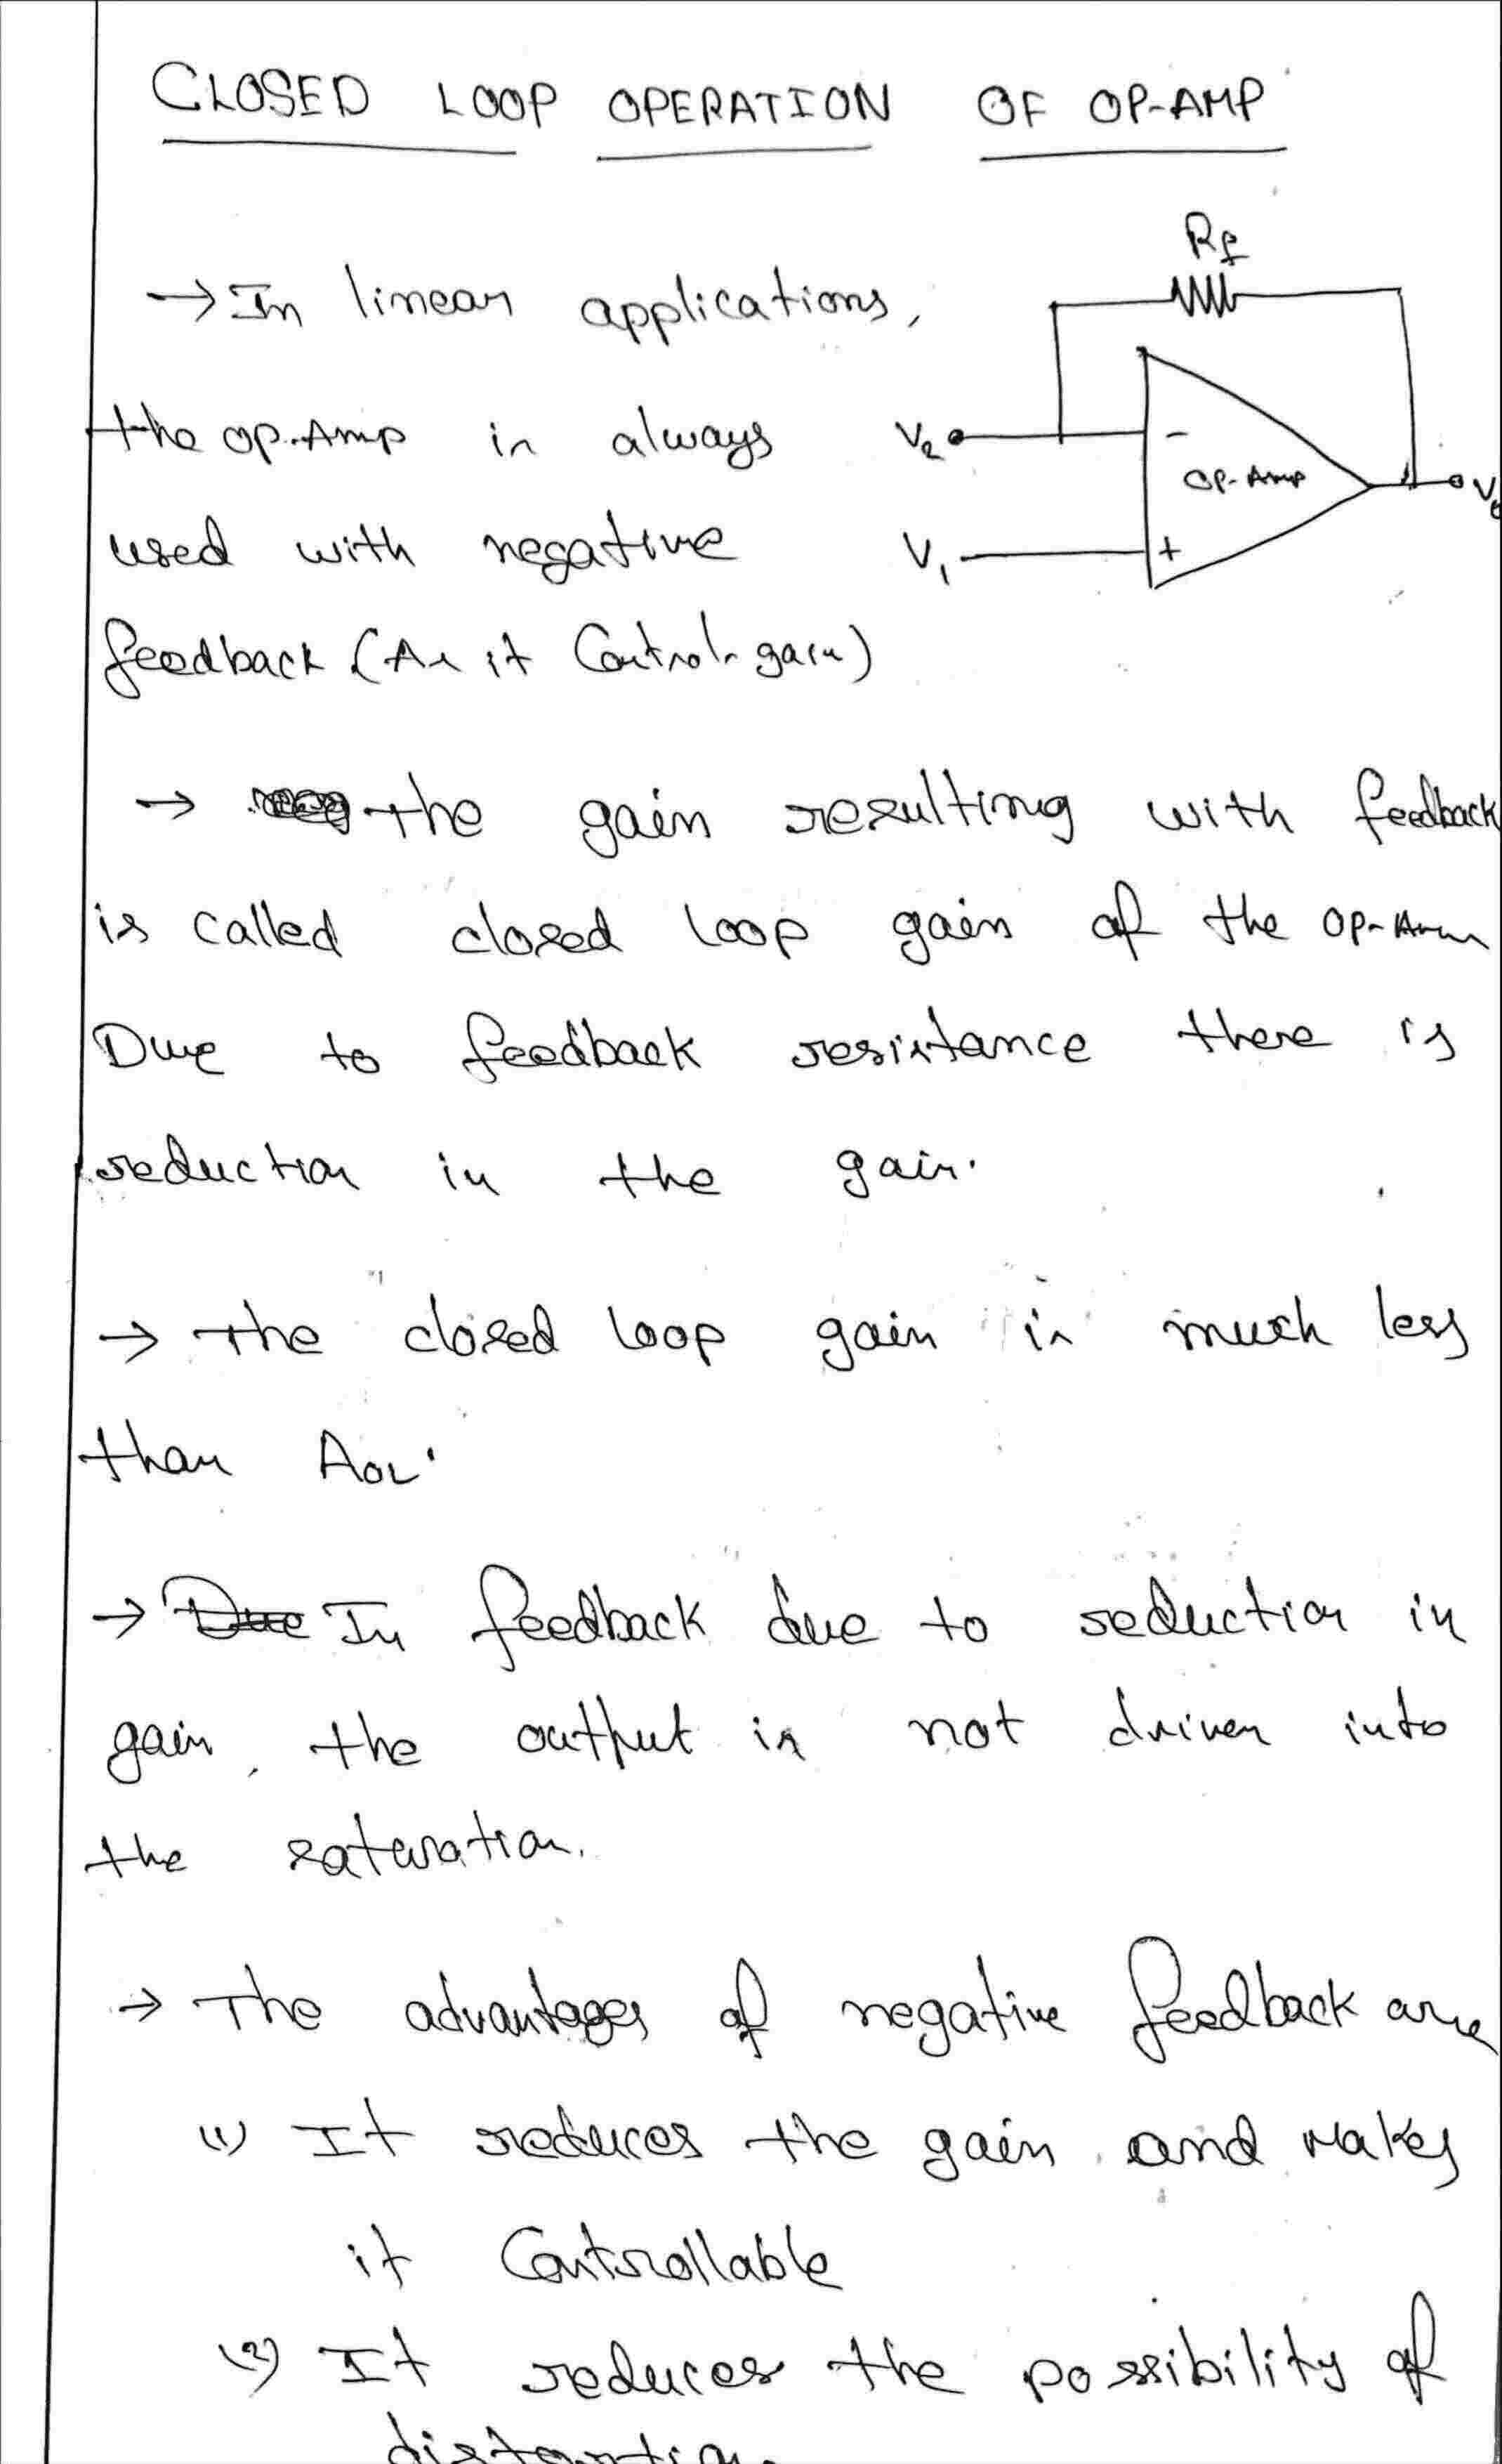 CLOSED LOOP OPERATION OF OP-AMP
Rf
→ In linear applications,
the OP-Amp is always
V2
-
OP-Amp
Vo
used with negative
V1
+
feedback (As it Controls gain)
→ the gain resulting with feedback
is called closed loop gain of the OP-Amp
Due to feedback resistance there is
reduction in the gain.
→ The closed loop gain is much less
than AOL.
→ In feedback due to reduction in
gain, the output is not driven into
the saturation.
→ The advantages of negative feedback are
(1) It reduces the gain and makes
it Controllable
(2) It reduces the possibility of
distortion.